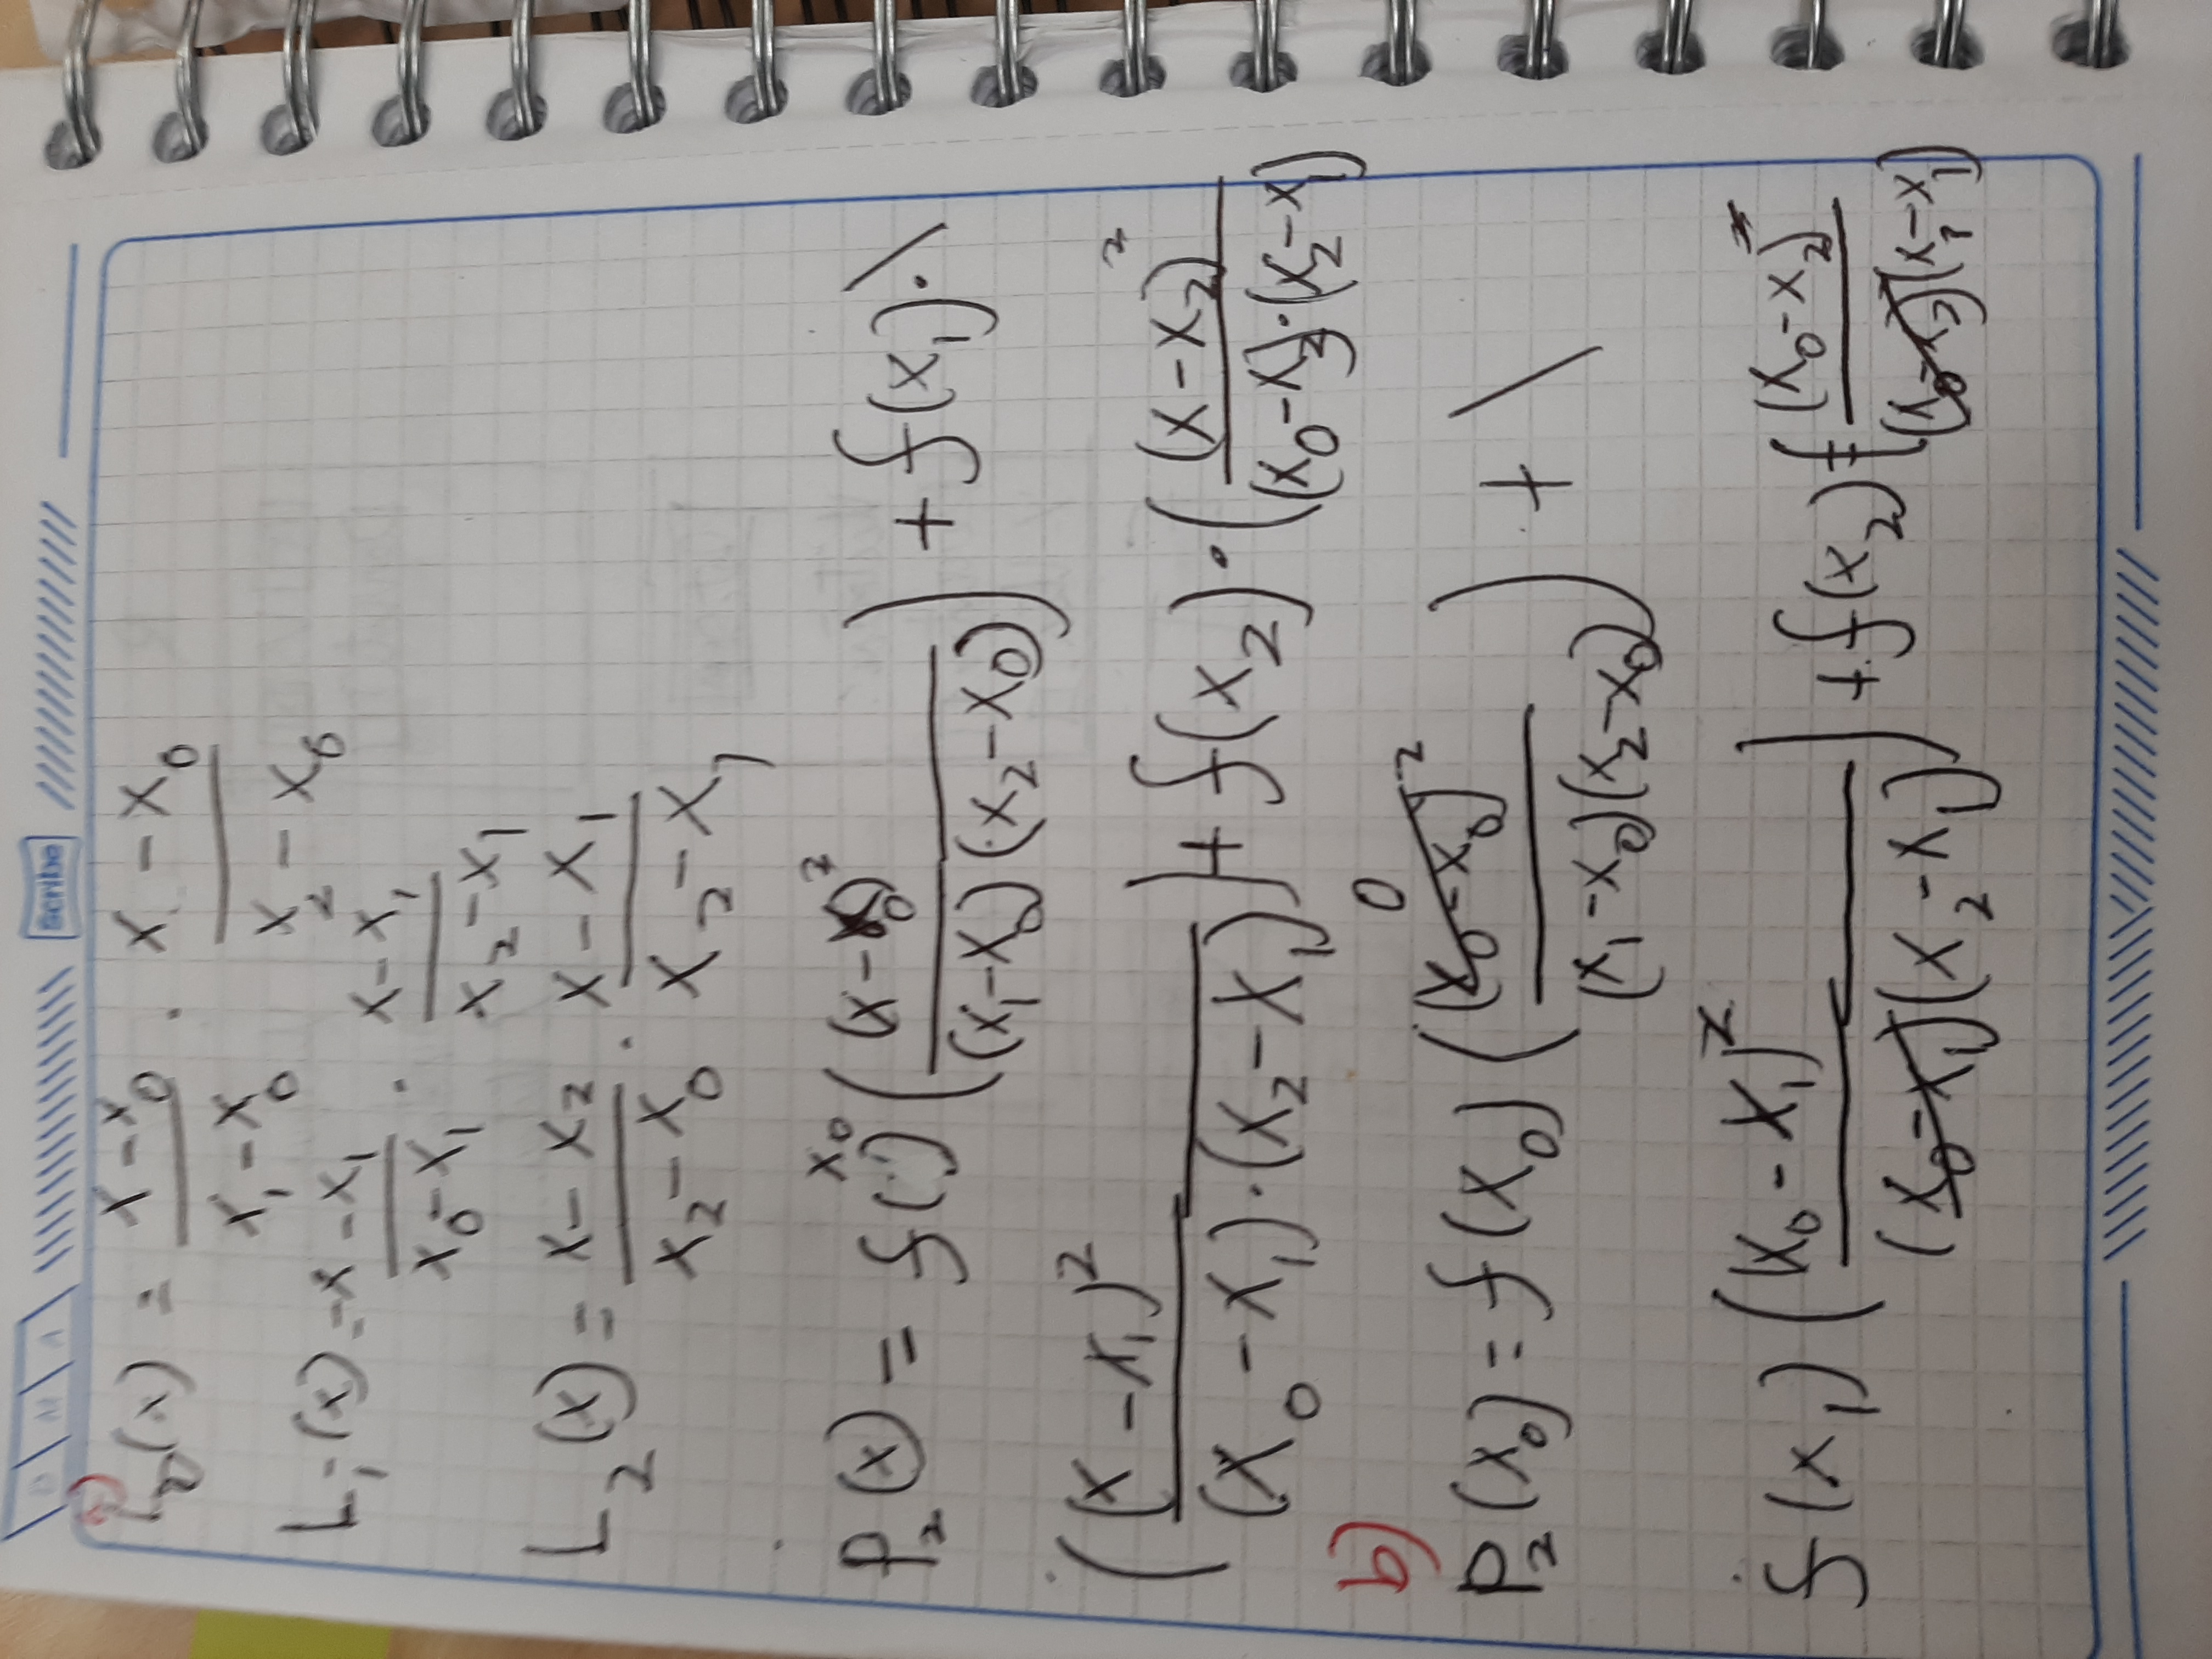 D M A Scribe
a)
L₀(x) = (x-x₀)/(x₁-x₀) · (x-x₀)/(x₂-x₀)
L₁(x) = (x-x₁)/(x₀-x₁) · (x-x₁)/(x₂-x₁)
L₂(x) = (x-x₂)/(x₂-x₀) · (x-x₁)/(x₂-x₁)
P₂(x) = f(x₀) ((x-x₀)²/((x₁-x₀)(x₂-x₀))) + f(x₁)·\
((x-x₁)²/((x₀-x₁)·(x₂-x₁))) + f(x₂)·((x-x₂)²/((x₀-x₂)·(x₂-x₁)))
b)
0
P₂(x₀) = f(x₀) ((x₀-x₀)²/((x₁-x₀)(x₂-x₀))) + \
f(x₁) ((x₀-x₁)²/((x₀-x₁)(x₂-x₁))) + f(x₂) ((x₀-x₂)²/((x₀-x₂)(x₂-x₁)))